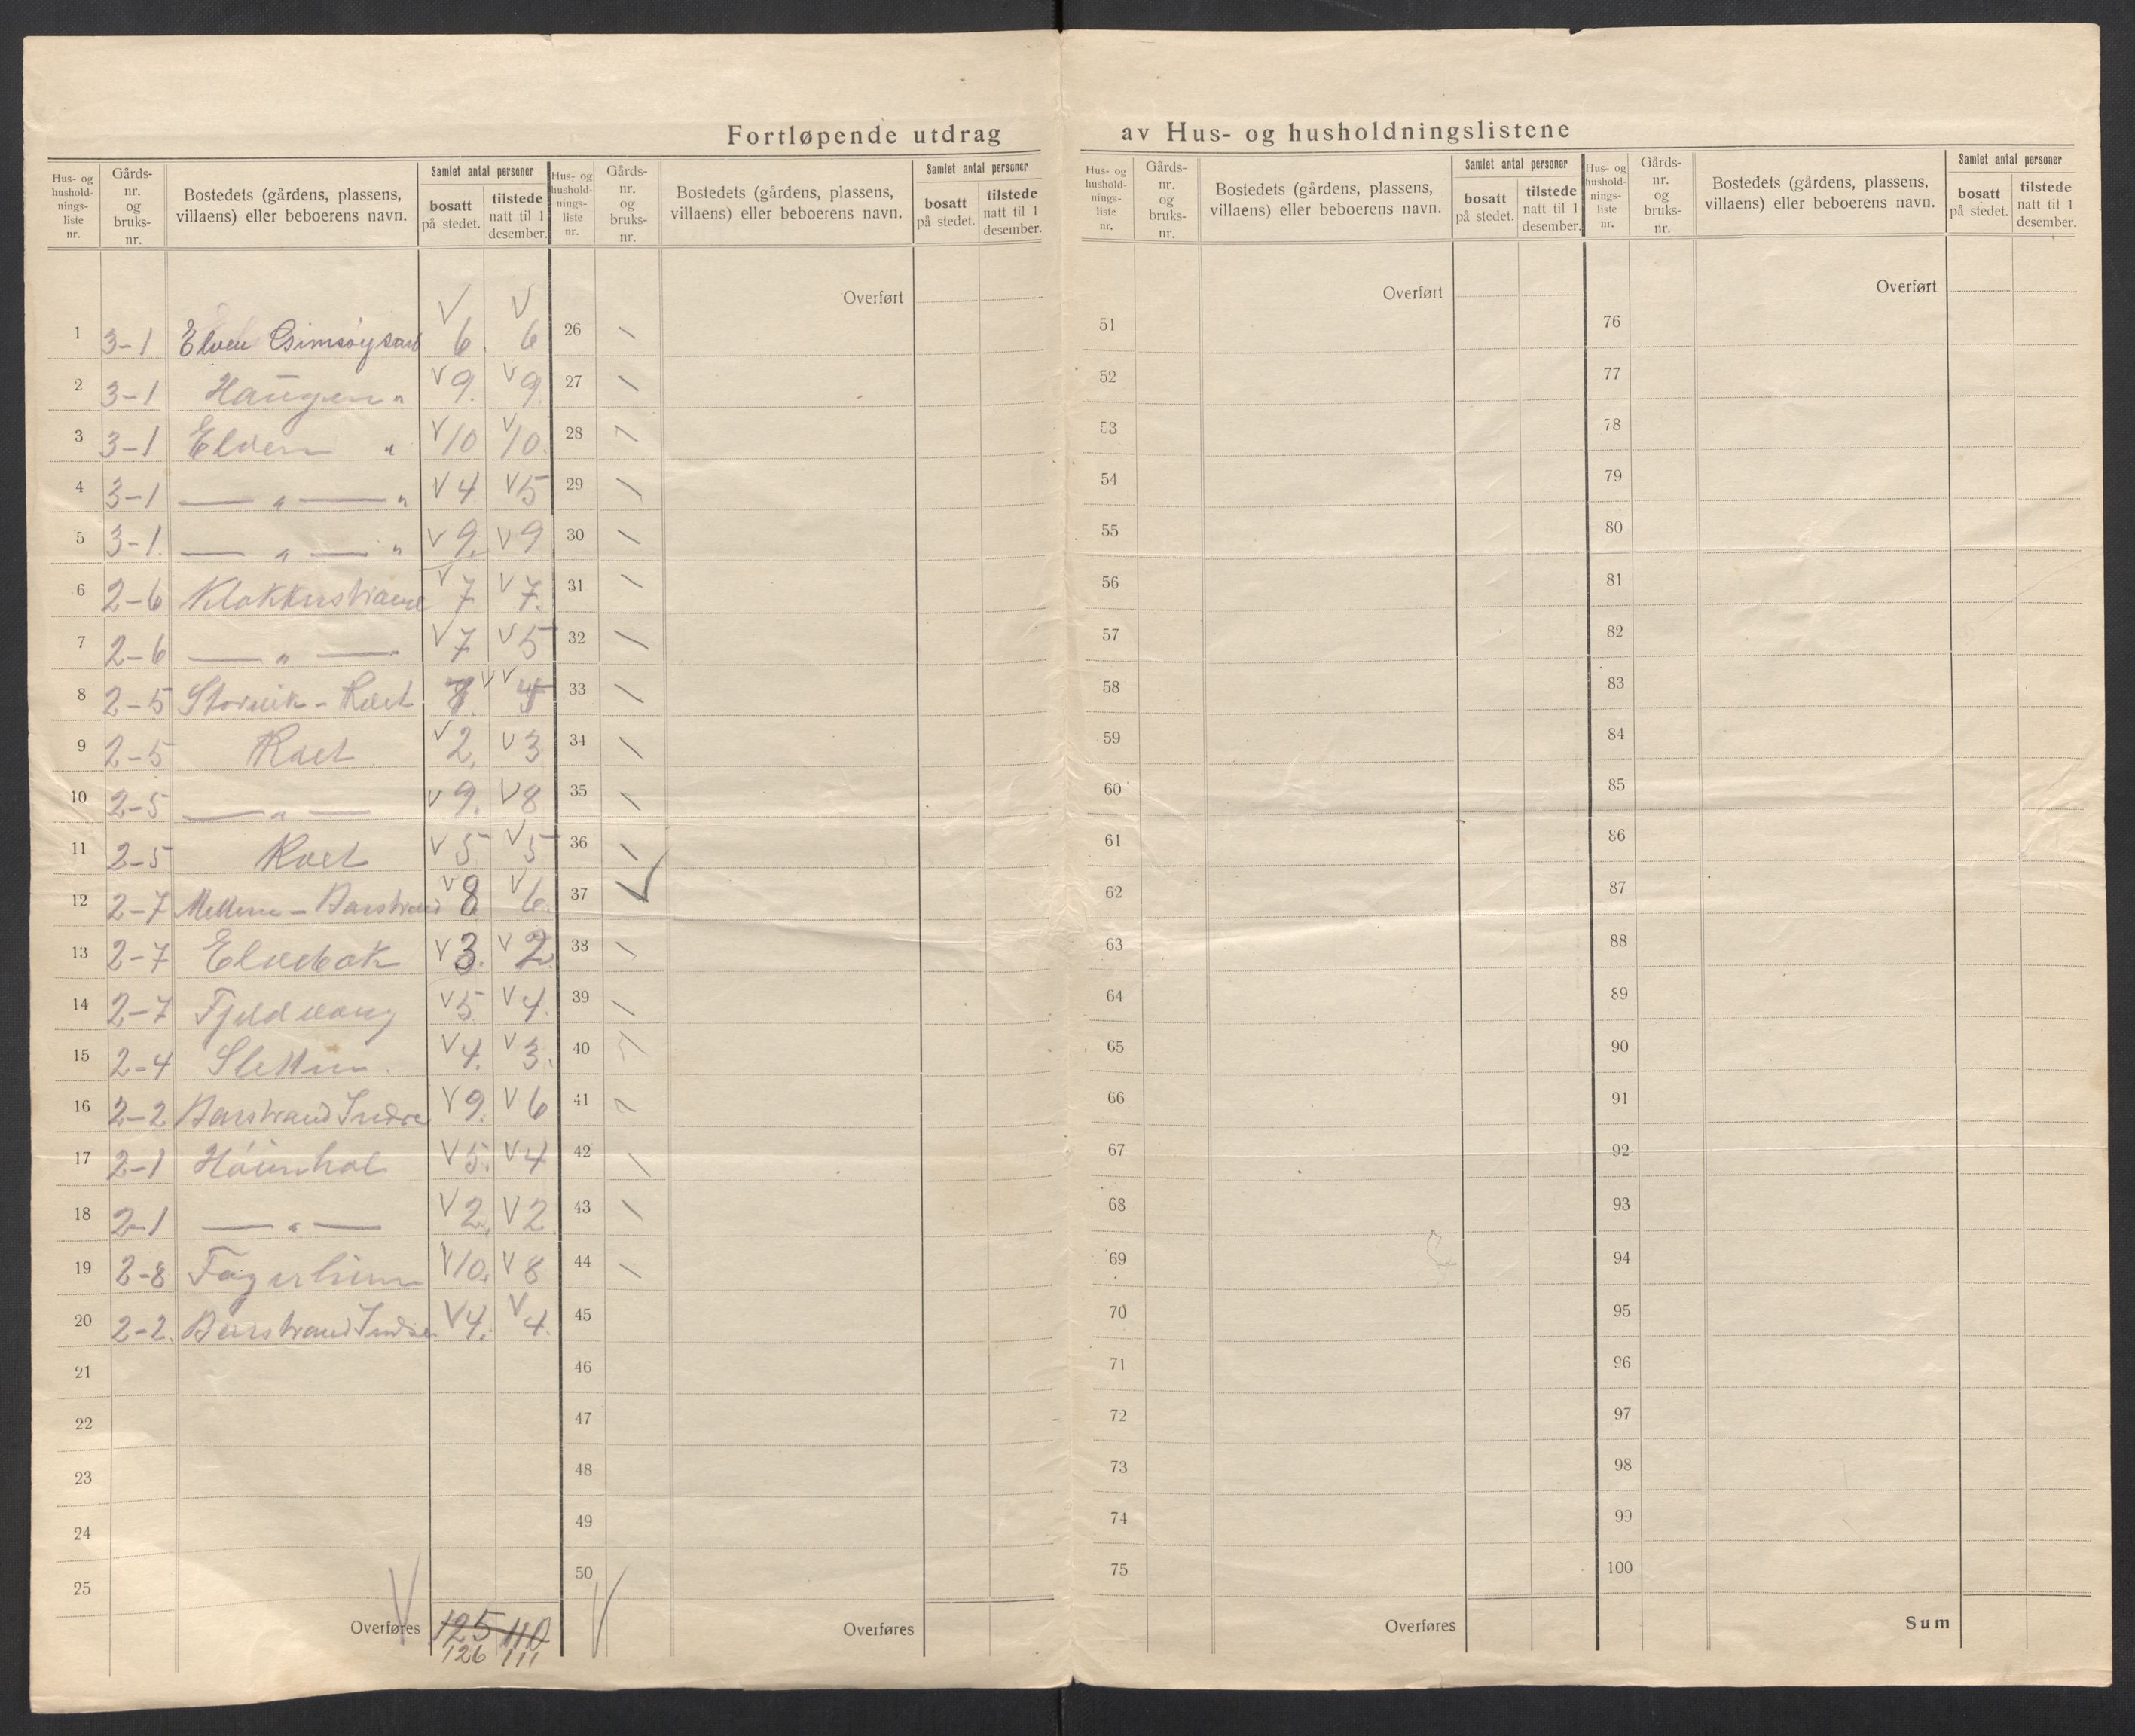 Fortløpende utdrag av Hus- og husholdningslistene
Hus- og hushold-nings-liste nr. Gårds-nr. og bruks-nr. Bostedets (gårdens, plassens, villaens) eller beboerens navn. Samlet antal personer bosatt på stedet. tilstede natt til 1 desember.
1 3-1 Elven Gimsøysand 6 6
2 3-1 Haugen " 9. 9.
3 3-1 Elven " 10 10.
4 3-1 — " — " 4 5
5 3-1. — " — " 9. 9
6 2-6 Klokkerstrand 7 7.
7 2-6 — " — 7 5
8 2-5 Storvik - Roet
9 2-5 Roet 2. 3
10 2-5 — " — 9. 8
11 2-5 Roet 5 5
12 2-7 Barstrand 8 6.
13 2-7 Elvebak 3. 2.
14 2-7 Fjeldvang 5 4.
15 2-4 Sletten. 4. 3.
16 2-2 Barstrand Indre 9. 6
17 2-1 5. 4
18 2-1 — " — 2. 2
19 2-8 Fagerheim 10. 8
20 2-2. Barstrand Indre 4. 4.
21
22
23
24
25
Overføres 125 110
126 111
Hus- og hushold-nings-liste nr. Gårds-nr. og bruks-nr. Bostedets (gårdens, plassens, villaens) eller beboerens navn. Samlet antal personer bosatt på stedet. tilstede natt til 1 desember.
Overført
26
27
28
29
30
31
32
33
34
35
36
37
38
39
40
41
42
43
44
45
46
47
48
49
50
Overføres
Hus- og hushold-nings-liste nr. Gårds-nr. og bruks-nr. Bostedets (gårdens, plassens, villaens) eller beboerens navn. Samlet antal personer bosatt på stedet. tilstede natt til 1 desember.
Overført
51
52
53
54
55
56
57
58
59
60
61
62
63
64
65
66
67
68
69
70
71
72
73
74
75
Overføres
Hus- og hushold-nings-liste nr. Gårds-nr. og bruks-nr. Bostedets (gårdens, plassens, villaens) eller beboerens navn. Samlet antal personer bosatt på stedet. tilstede natt til 1 desember.
Overført
76
77
78
79
80
81
82
83
84
85
86
87
88
89
90
91
92
93
94
95
96
97
98
99
100
Sum